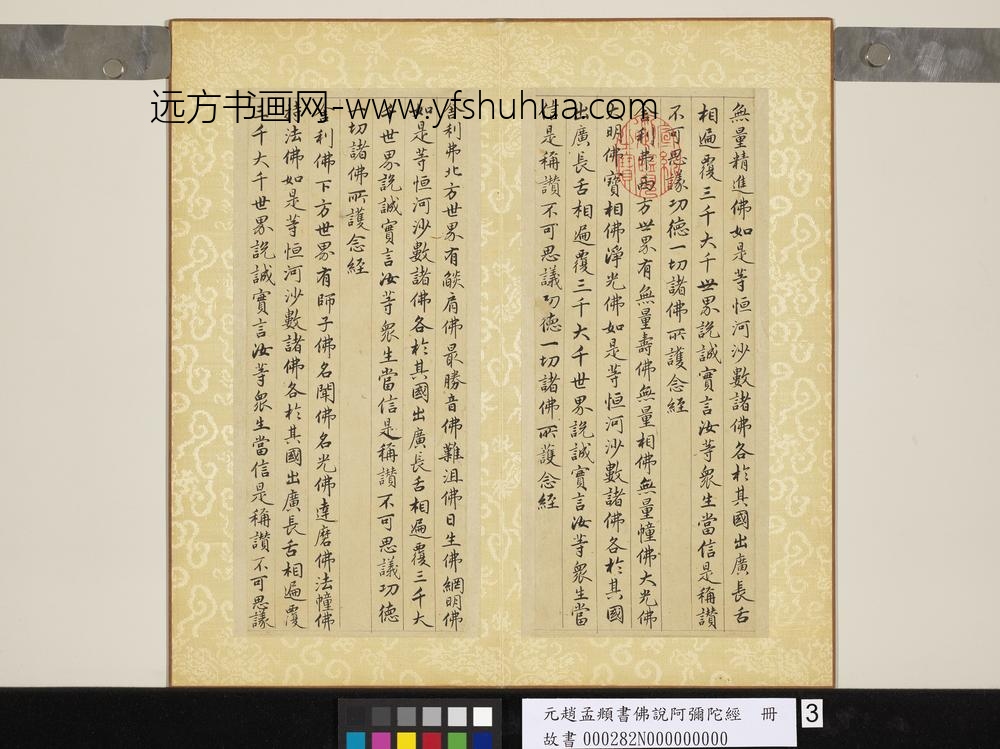 無量精進佛如是等恒河沙數諸佛各於其國出廣長舌
相遍覆三千大千世界說誠實言汝等衆生當信是稱讚
不可思議功德一切諸佛所護念經
舍利弗西方世界有無量壽佛無量相佛無量幢佛大光佛
大明佛寶相佛淨光佛如是等恒河沙數諸佛各於其國
出廣長舌相遍覆三千大千世界說誠實言汝等衆生當
信是稱讚不可思議功德一切諸佛所護念經
舍利弗北方世界有燄肩佛最勝音佛難沮佛日生佛網明佛
如是等恒河沙數諸佛各於其國出廣長舌相遍覆三千大
千世界說誠實言汝等衆生當信是稱讚不可思議功德
一切諸佛所護念經
舍利佛下方世界有師子佛名聞佛名光佛達磨佛法幢佛
持法佛如是等恒河沙數諸佛各於其國出廣長舌相遍覆
三千大千世界說誠實言汝等衆生當信是稱讚不可思議
远方书画网-www.yfshuhua.com
元趙孟頫書佛說阿彌陀經 冊
故書 000282N000000000
3